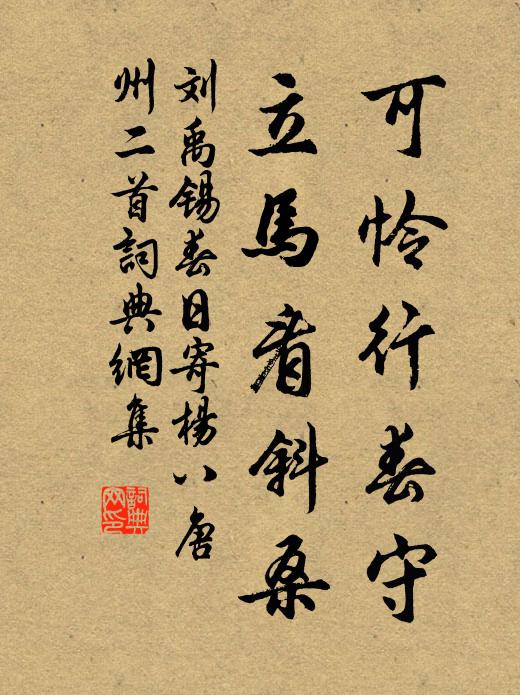 可怜行春守
立馬看斜桑
刘禹锡春日寄楊八唐
州二首詞典網集
詞典
网印